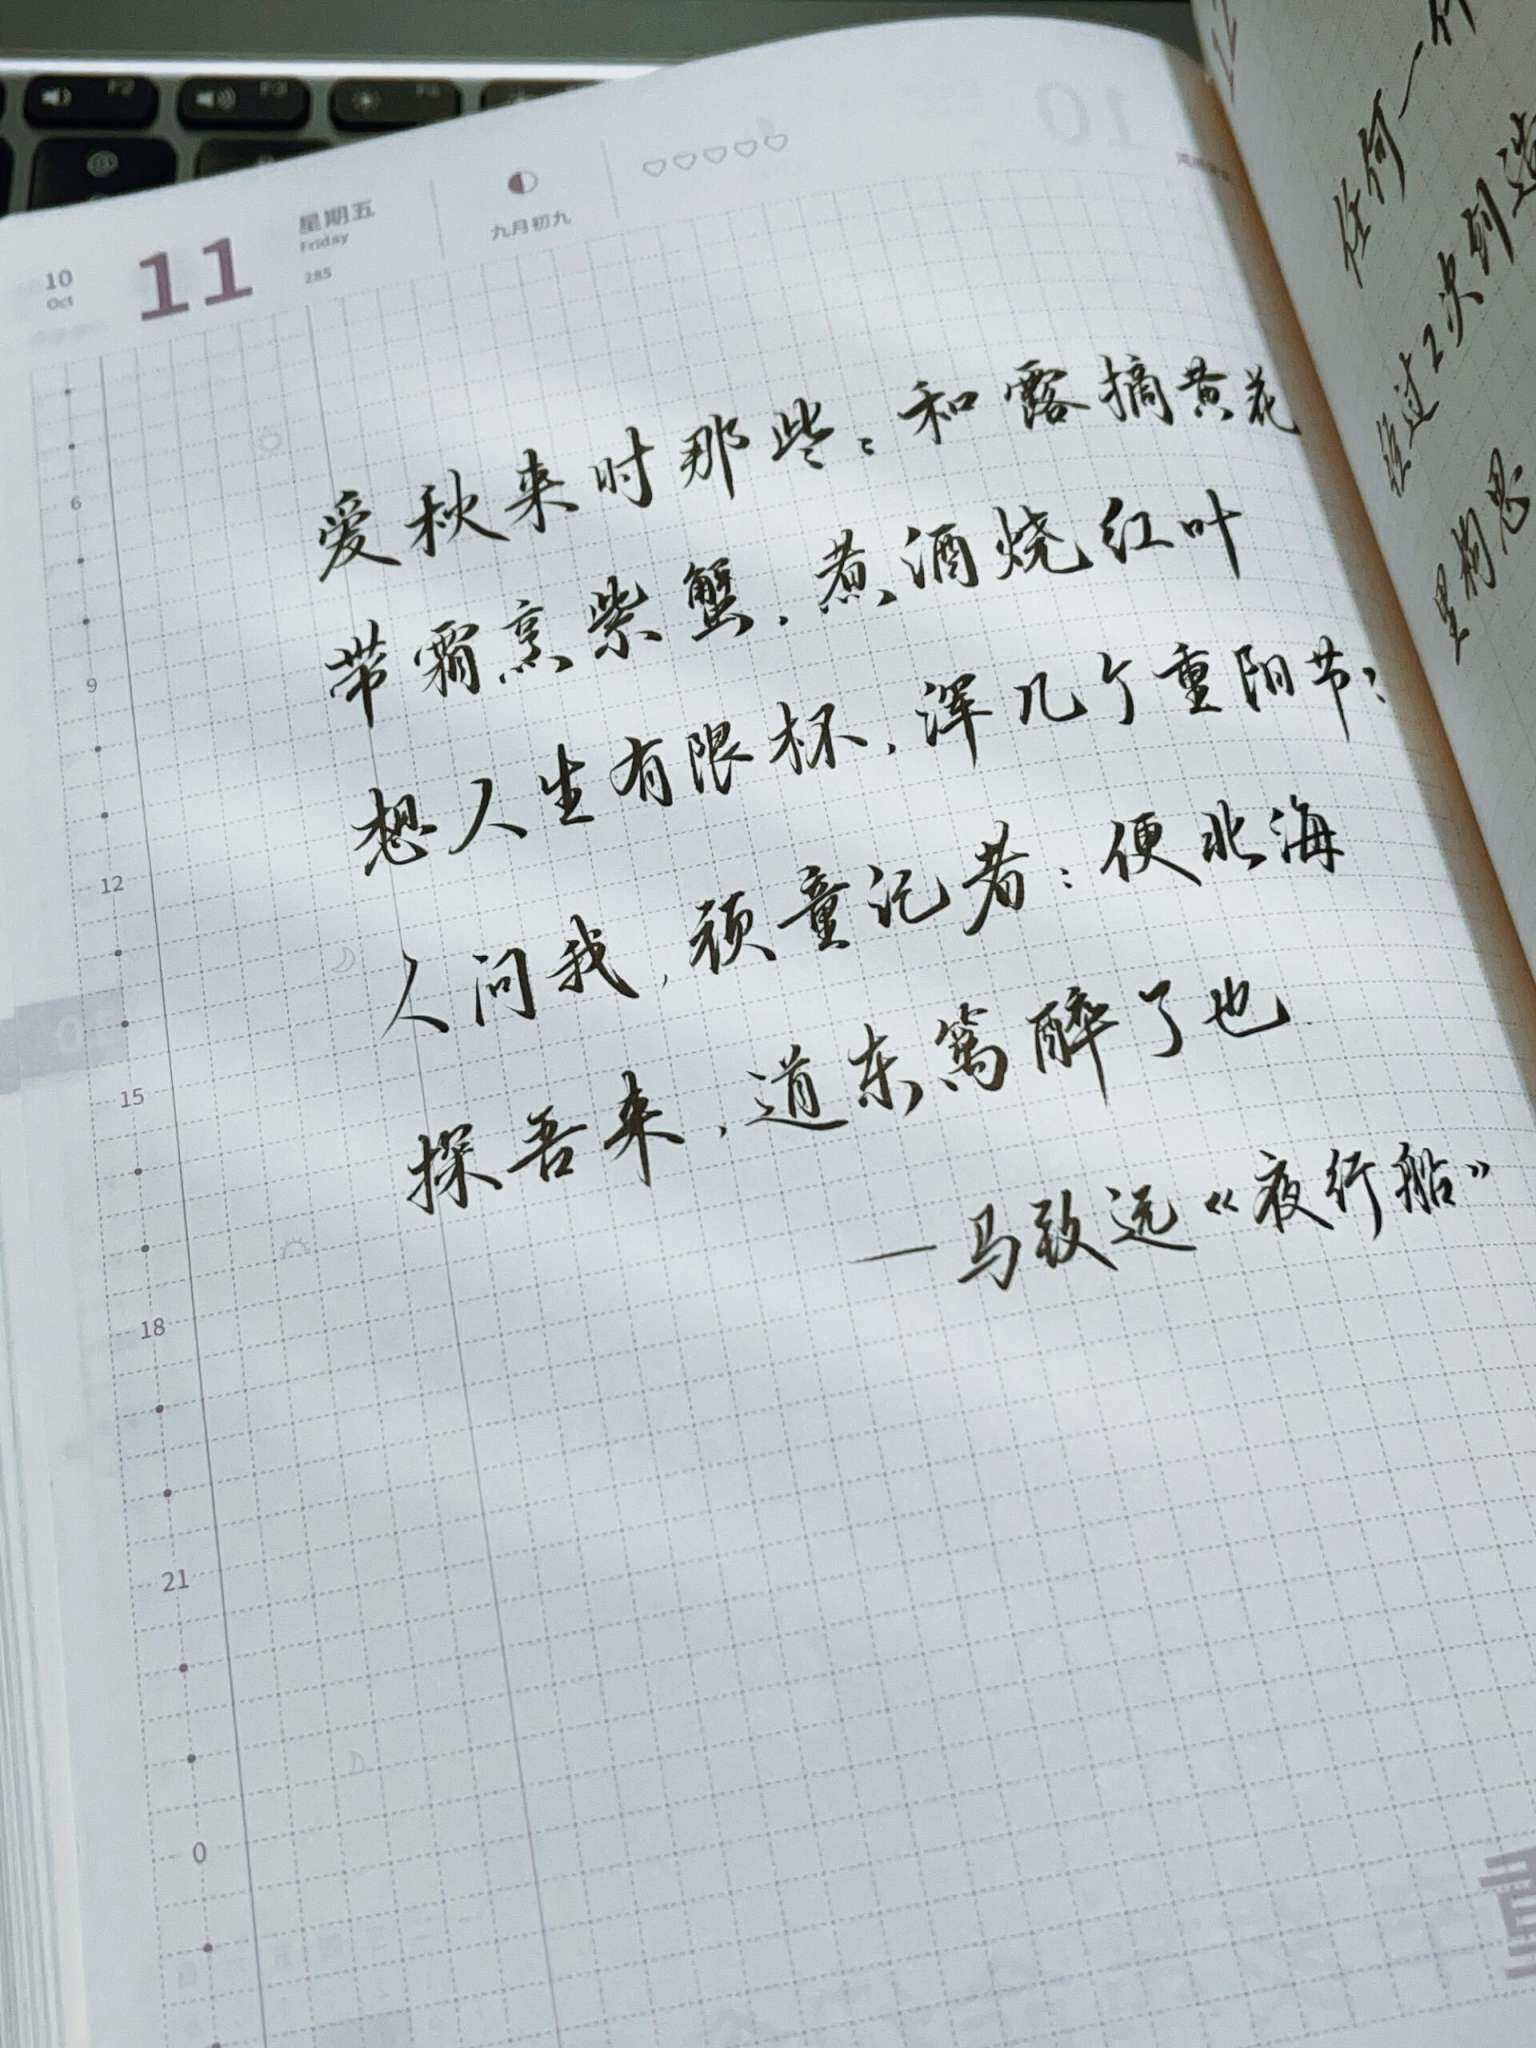 F2
F3
10
Oct
11
星期五
Friday
285
九月初九
10
爱秋来时那些：和露摘黄花
带霜烹紫蟹，煮酒烧红叶
想人生有限杯，浑几个重阳节？
人问我，顽童记者：便北海
探吾来，道东篱醉了也
—马致远《夜行船》
6
9
12
15
18
21
0
12
任何一个
经过2次创造
里构思
重